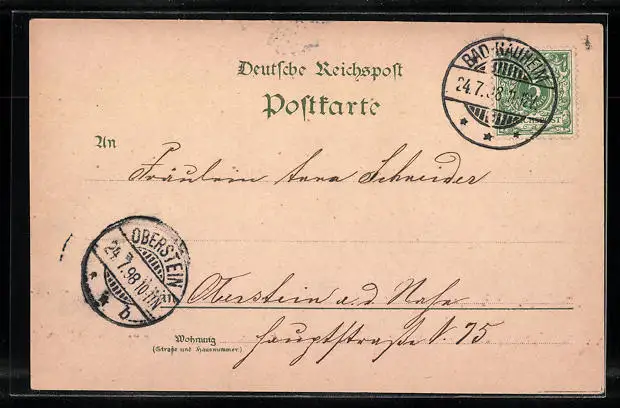 Deutsche Reichspost
Postkarte
BAD-NAUHEIM
24.7.98
An
Fräulein Anna Schneider
OBERSTEIN
24.7.98 10-11N
b
in
Oberstein a. d. Nahe
Wohnung
(Straße und Hausnummer)
Hauptstraße N. 75